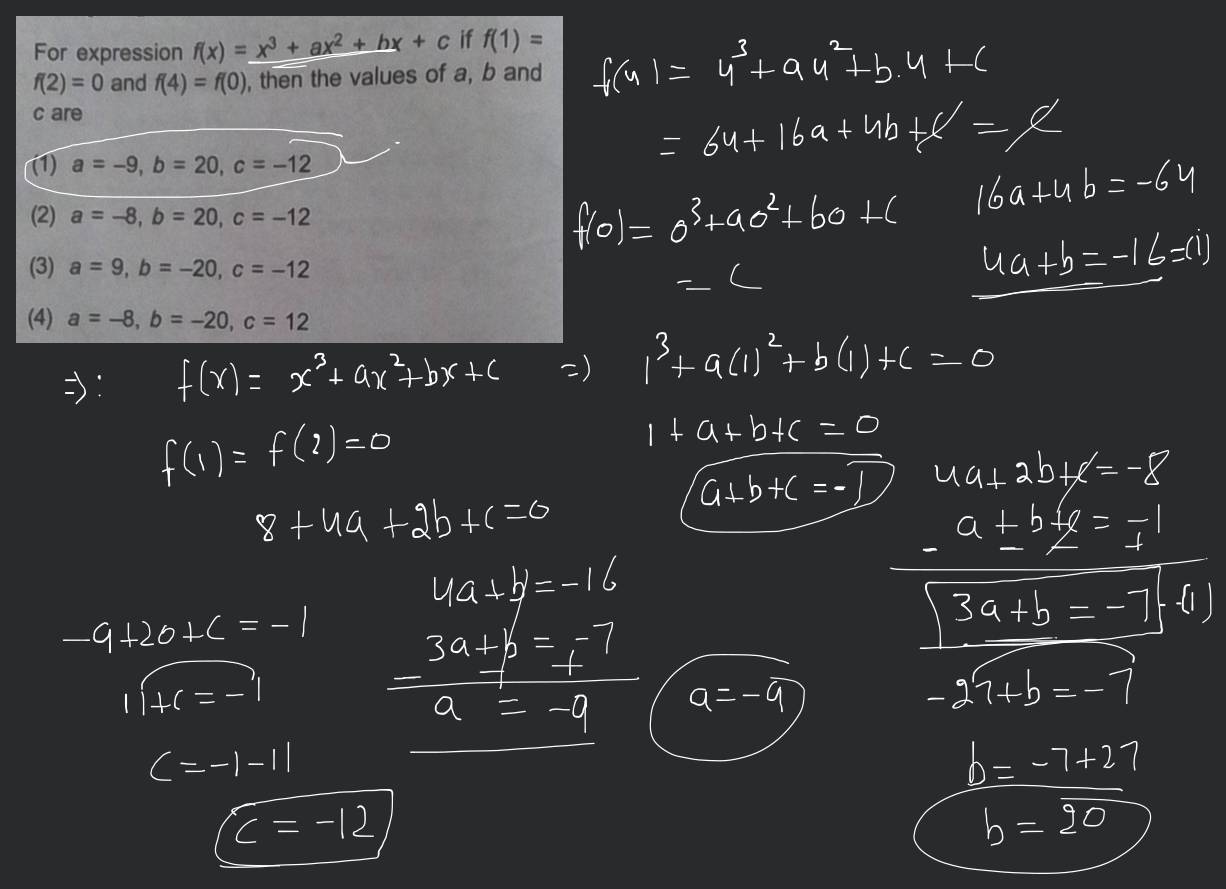 For expression f(x) = x³ + ax² + bx + c if f(1) =
f(2) = 0 and f(4) = f(0), then the values of a, b and
c are
(1) a = –9, b = 20, c = –12
(2) a = –8, b = 20, c = –12
(3) a = 9, b = –20, c = –12
(4) a = –8, b = –20, c = 12
f(4) = 4³ + a4² + b.4 + c
= 64 + 16a + 4b + c = c
16a + 4b = -64
f(0) = 0³ + a0² + b0 + c
4a + b = -16 = (i)
= c
⇒: f(x) = x³ + ax² + bx + c ⇒ 1³ + a(1)² + b(1) + c = 0
f(1) = f(2) = 0
1 + a + b + c = 0
a + b + c = -1
8 + 4a + 2b + c = 0
4a + 2b + c = -8
a + b + c = -1
- - - +
3a + b = -7 - (1)
4a + b = -16
3a + b = -7
- - +
a = -9
a = -9
-27 + b = -7
b = -7 + 27
b = 20
-9 + 20 + c = -1
11 + c = -1
c = -1 - 11
c = -12